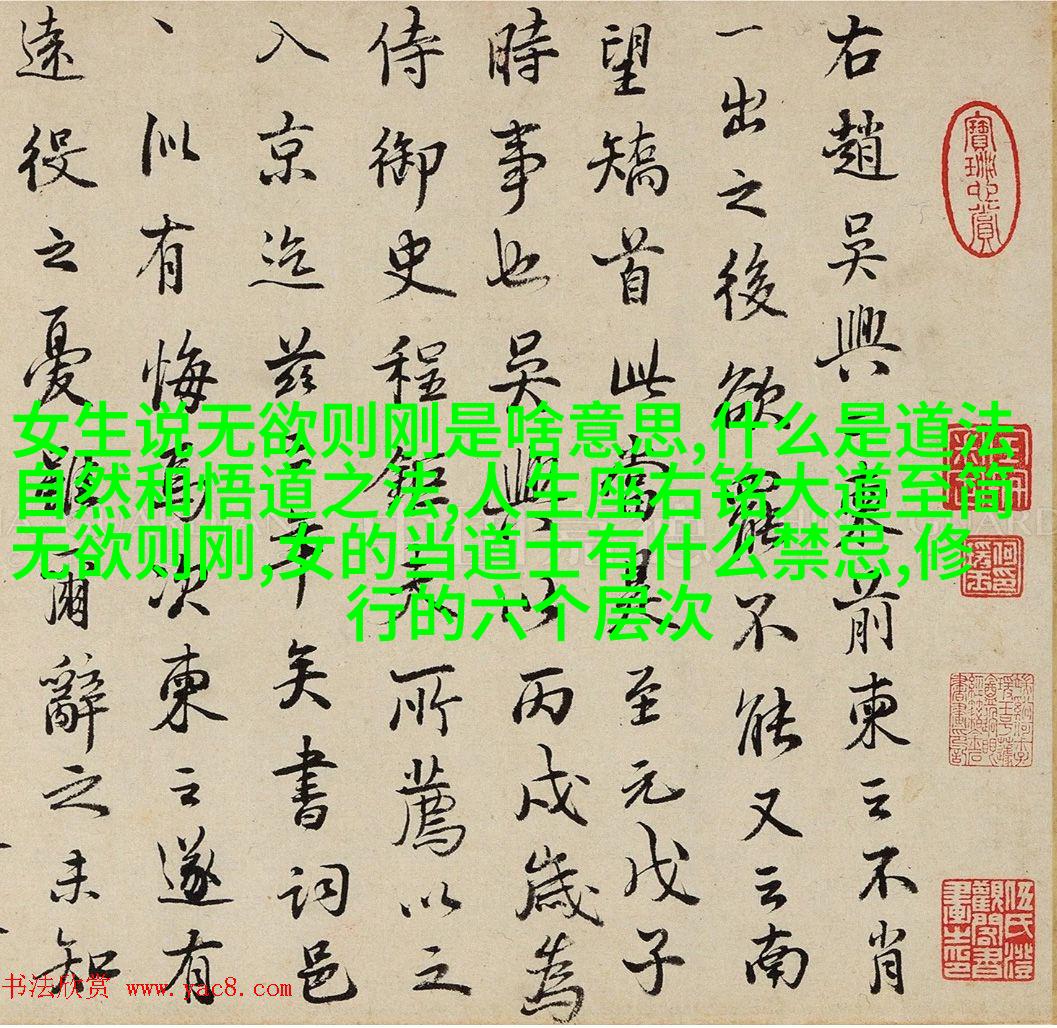 右趙吳興二柬前柬云不肖
一出之後欲罷不能又云南
望矯首此當是至元戊子
時事也吳興以丙戌歲為
侍御史程鉅夫所薦以之
入京迄茲年矣書詞邑
丶似有悔次柬云遂有
遠役之憂雖爾辭之未知
女生说无欲则刚是啥意思,什么是道法
自然和悟道之法,人生座右铭大道至简
无欲则刚,女的当道士有什么禁忌,修
行的六个层次
伍氏澄
觀閣書
畫之印
书法欣赏 www.yac8.com